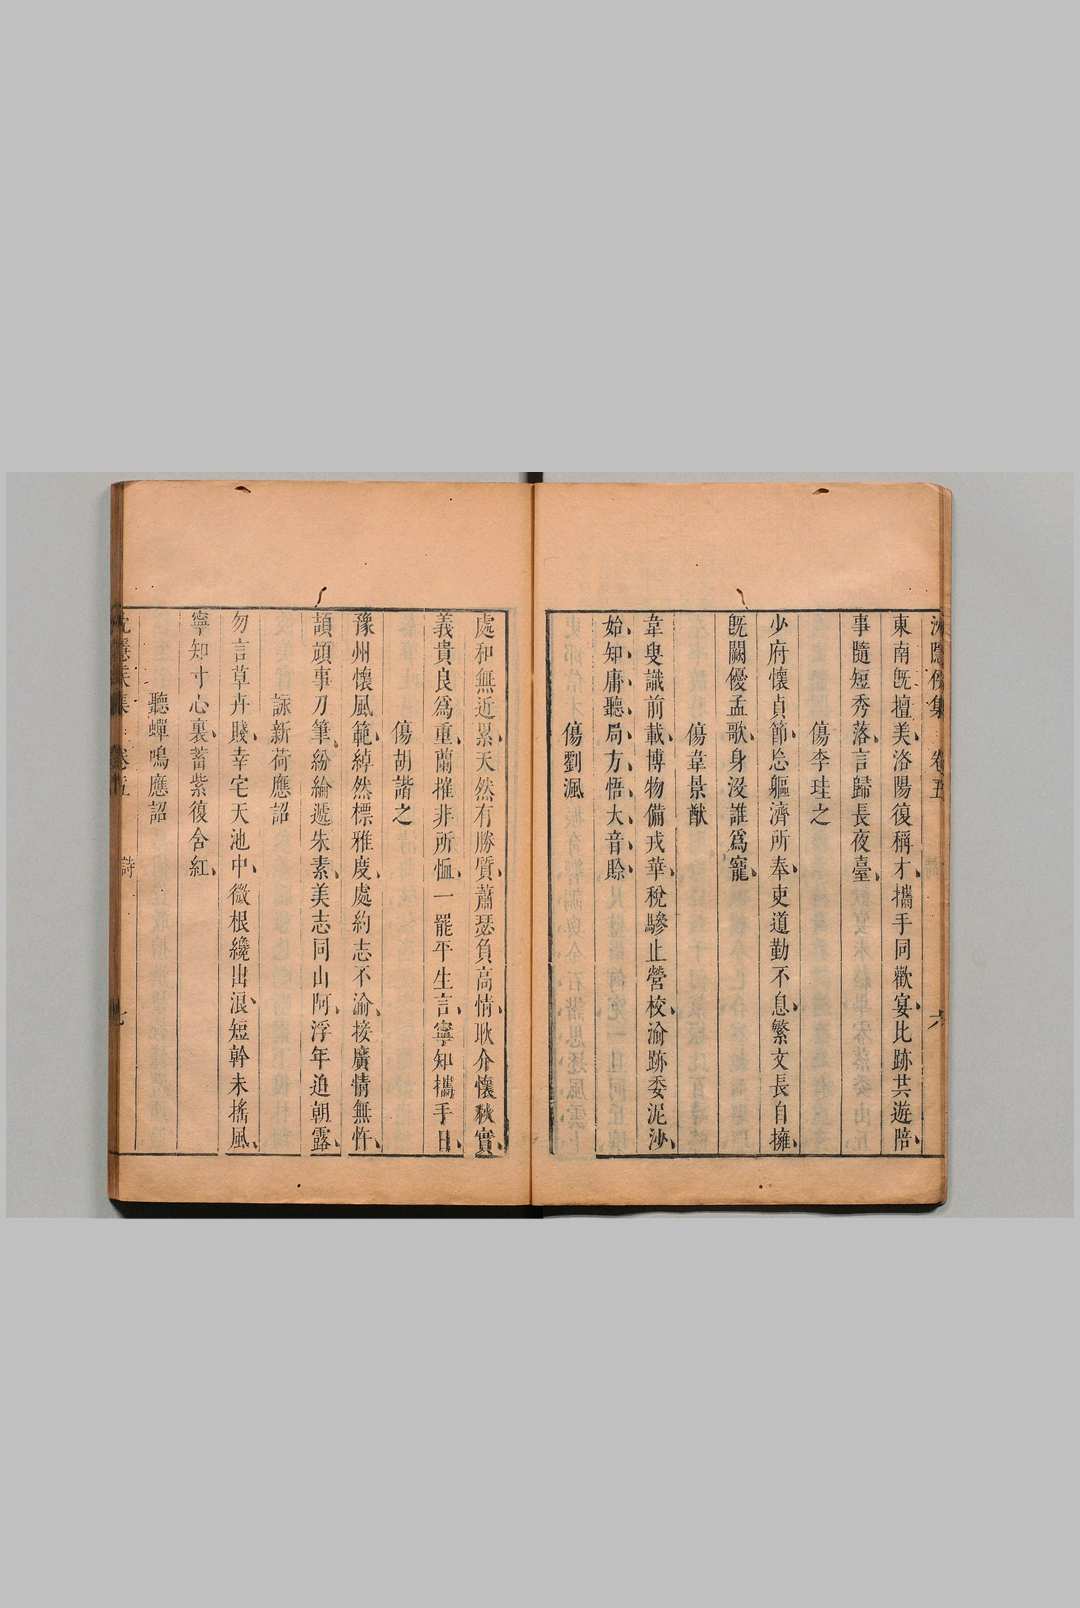 沈隱侯集 卷五 六
東南既擅美洛陽復稱才攜手同歡宴比跡共遊陪
事隨短秀落言歸長夜臺
傷李珪之
少府懷貞節忘軀濟所奉吏道勤不息繁文長自擁
既闕優孟歌身沒誰爲寵
傷韋景猷
韋叟識前載博物備戎華稅驂止營校淪跡委泥沙
始知庸聽局方悟大音賖
傷劉渢
處和無近累天然有勝質蕭瑟負高情耿介懷秋實
義貴良爲重蘭摧非所恤一罷平生言寧知攜手日
傷胡諧之
豫州懷風範綽然標雅度處約志不渝接廣情無忤
頡頏事刀筆紛綸遞朱素美志同山阿浮年迫朝露
詠新荷應詔
勿言草卉賤幸宅天池中微根纔出浪短幹未搖風
寧知寸心裏蓄紫復含紅
聽蟬鳴應詔
沈隱侯集 卷五 詩 七